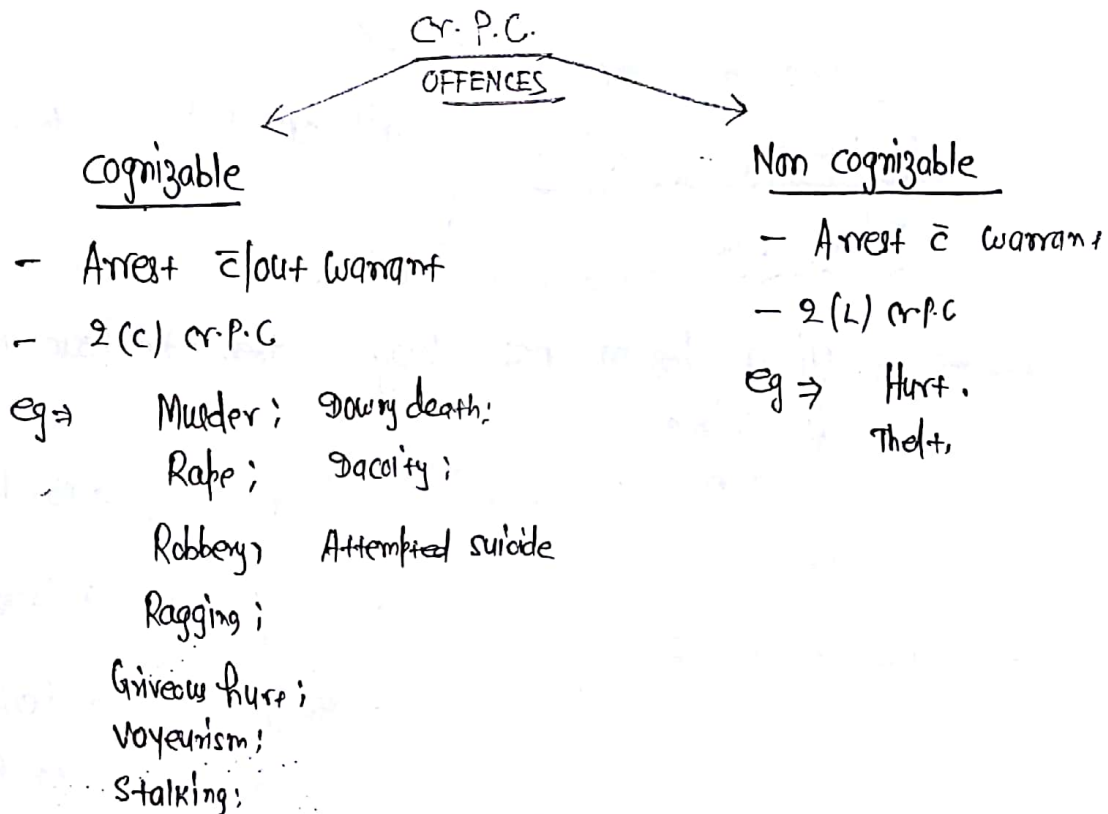 Cr. P. C.
OFFENCES
Cognizable
- Arrest c̄/out warrant
- 2(c) Cr.P.C
eg ⇒ Murder; Dowry death;
Rape; Dacoity;
Robbery, Attempted suicide
Ragging;
Griveous hurt;
Voyeurism;
Stalking;
Non cognizable
- Arrest c̄ warrant
- 2(L) Cr.P.C
eg ⇒ Hurt.
Theft,